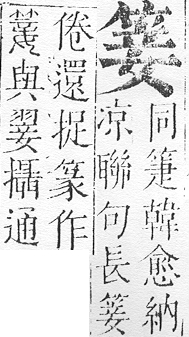 同箑韓愈納
凉聯句長
倦還捉篆作
與翣攝通